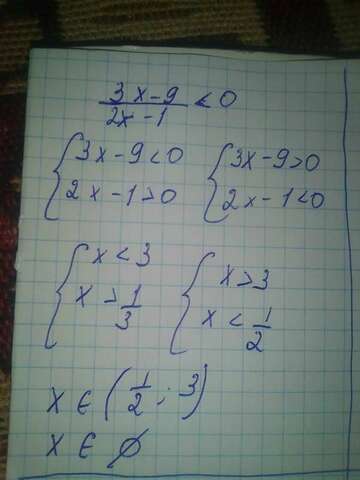 (3x-9)/(2x-1) < 0
{3x-9<0 {3x-9>0
{2x-1>0 {2x-1<0
{x<3 {x>3
{x>1/3 {x<1/2
x∈(1/2; 3)
x∈∅